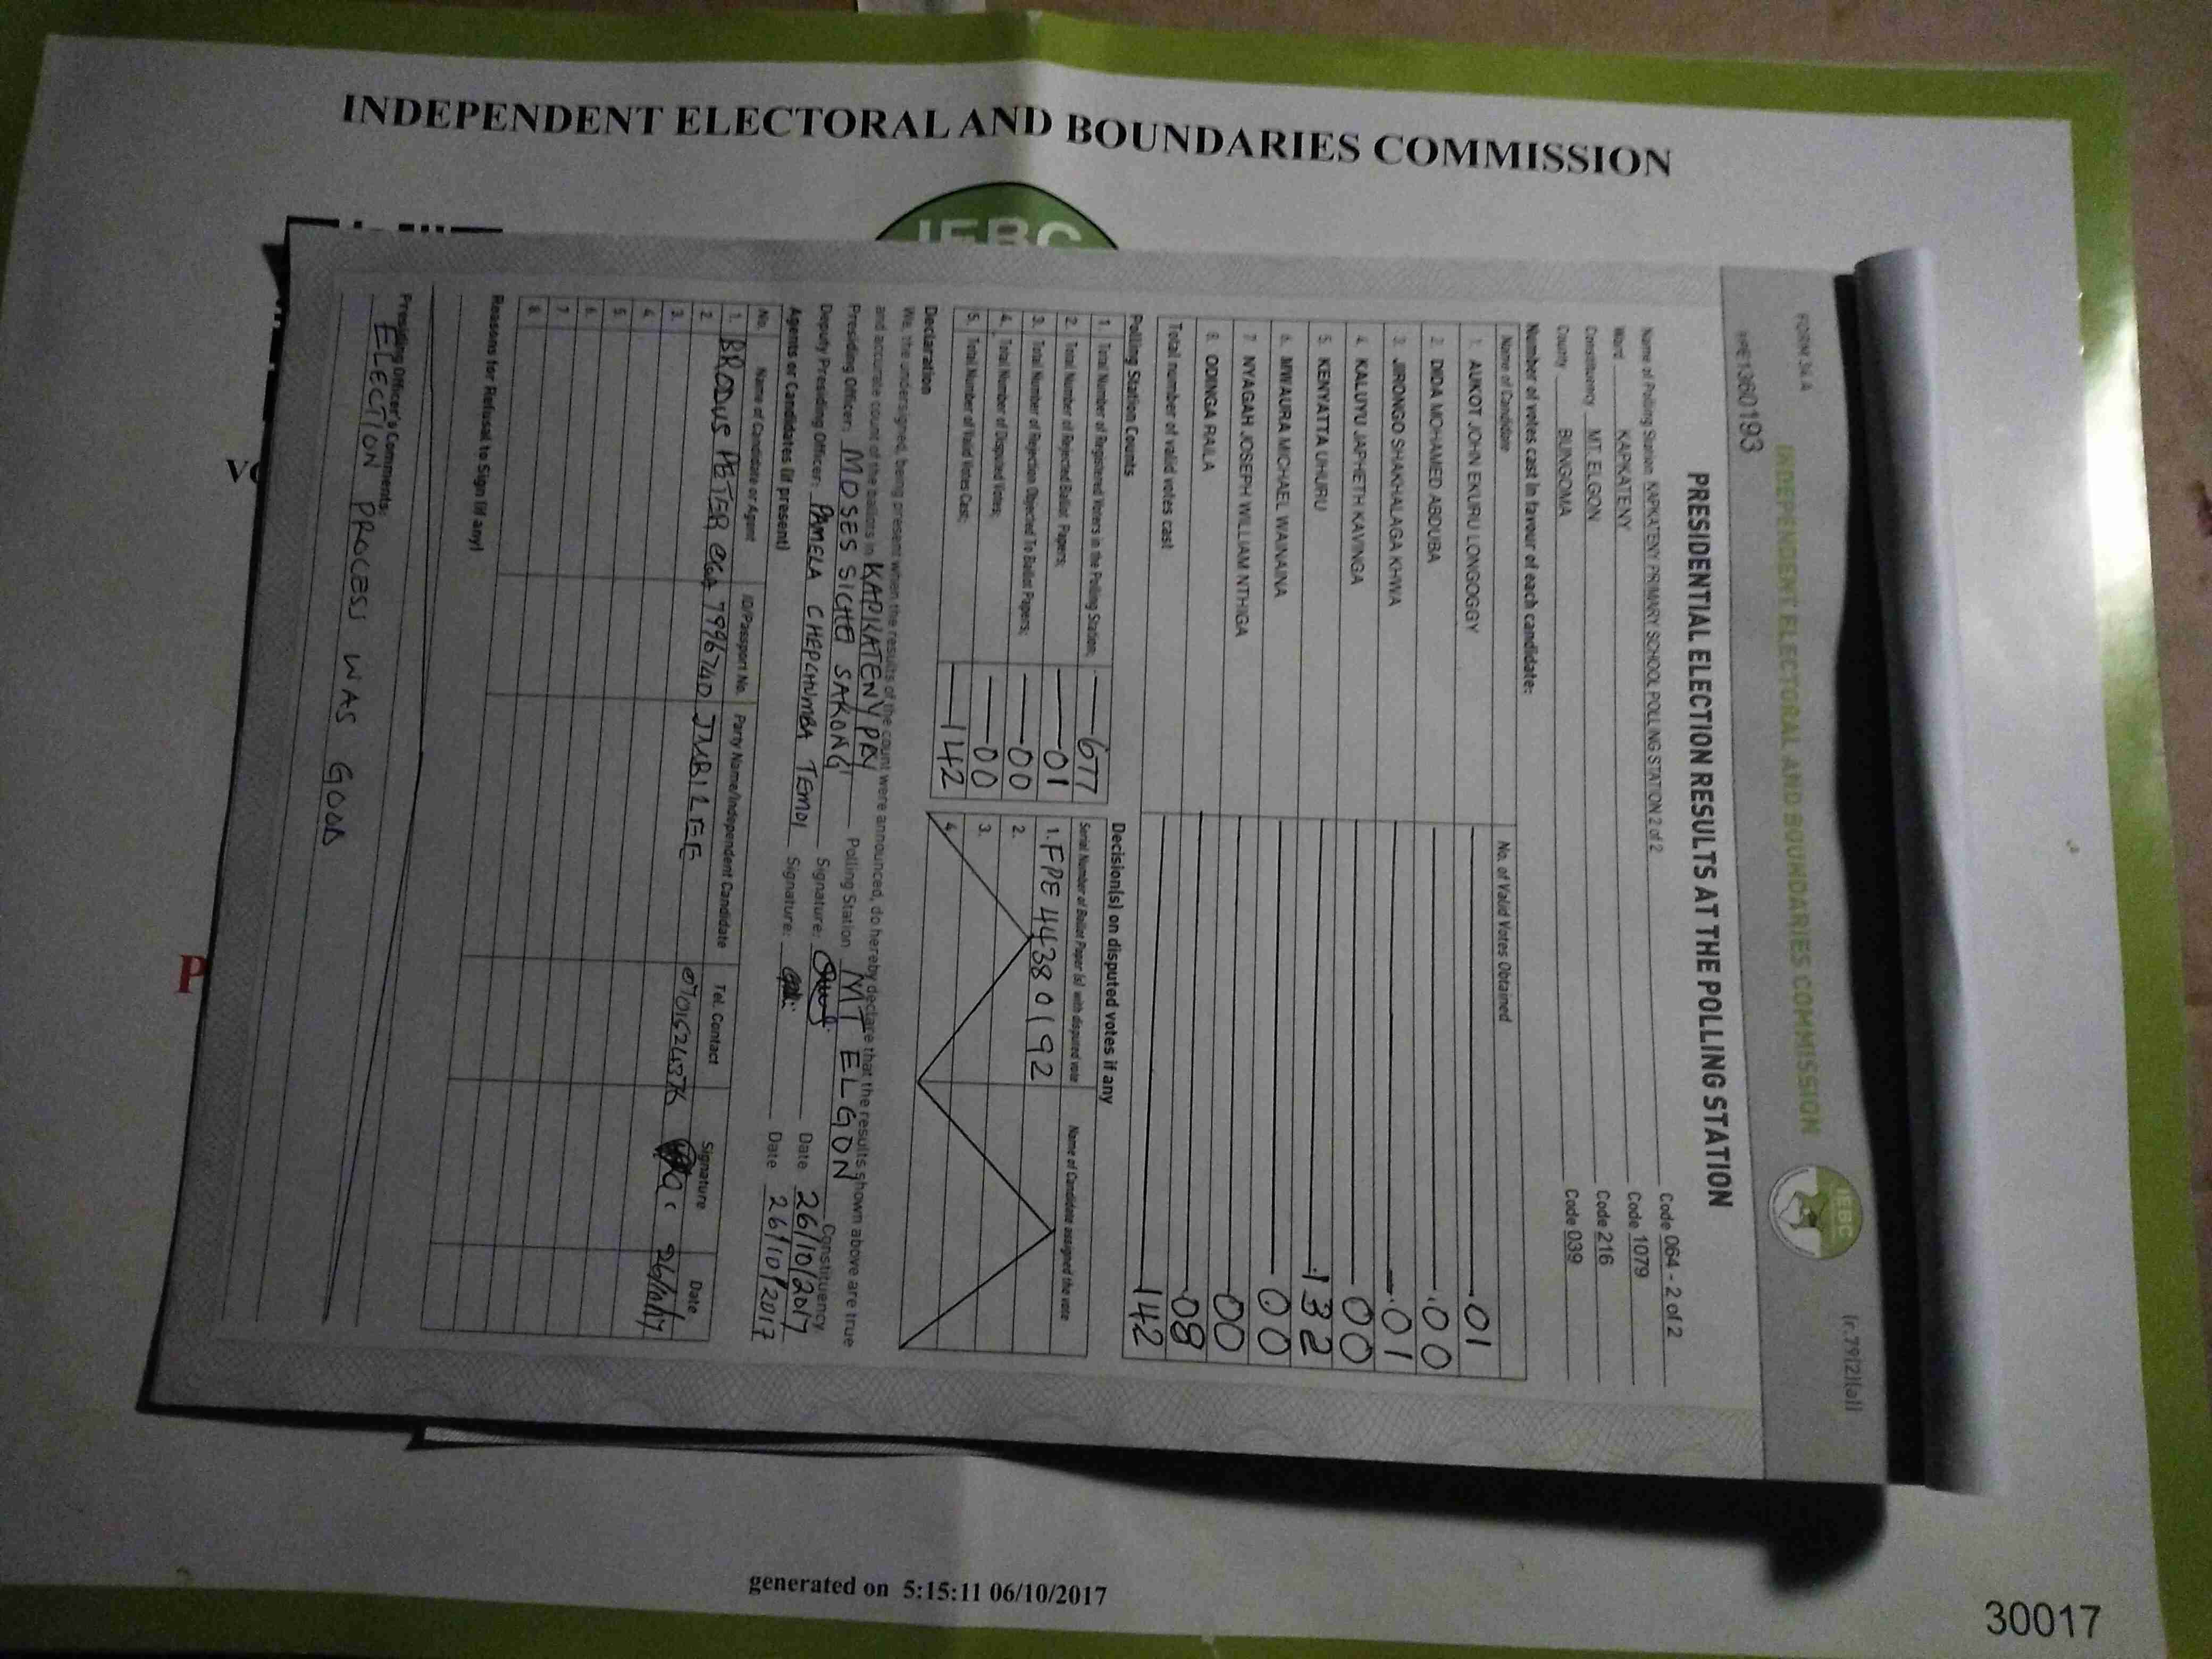 INDEPENDENT ELECTORAL AND BOUNDARIES COMMISSION
IEBC
FORM 34 A
INDEPENDENT ELECTORAL AND BOUNDARIES COMMISSION
IEBC
(r.79(2)(a))
1360193
PRESIDENTIAL ELECTION RESULTS AT THE POLLING STATION
Name of Polling Station KAPKATENY PRIMARY SCHOOL POLLING STATION 2 of 2 Code 064 - 2 of 2
Ward KAPKATENY Code 1079
Constituency MT. ELGON Code 216
County BUNGOMA Code 039
Number of votes cast in favour of each candidate:
Name of Candidate No. of Valid Votes Obtained
1. AUKOT JOHN EKURU LONGOGGY 01
2. DIDA MOHAMED ABDUBA 00
3. JIRONGO SHAKHALAGA KHWA 01
4. KALUYU JAPHETH KAVINGA 00
5. KENYATTA UHURU 132
6. MWAURA MICHAEL WAINAINA 00
7. NYAGAH JOSEPH WILLIAM NTHIGA 00
8. ODINGA RAILA 08
Total number of valid votes cast 142
Polling Station Counts
1. Total Number of Registered Voters in the Polling Station; 677
2. Total Number of Rejected Ballot Papers; 01
3. Total Number of Rejection Objected To Ballot Papers; 00
4. Total Number of Disputed Votes; 00
5. Total Number of Valid Votes Cast; 142
Decision(s) on disputed votes if any
Serial Number of Ballot Paper (s) with disputed vote Name of Candidate assigned the vote
1. FPE 443801 92
2.
3.
4.
Declaration
We, the undersigned, being present when the results of the count were announced, do hereby declare that the results shown above are true
and accurate count of the ballots in KAPKATENY PRY Polling Station MT ELGON Constituency
Presiding Officer: MOSES SICHEI SAKONG Signature: Date 26/10/2017
Deputy Presiding Officer: PAMELA CHEPCHUMBA TEMOI Signature: Date 26/10/2017
Agents or Candidates (if present)
No. Name of Candidate or Agent ID/Passport No. Party Name/Independent Candidate Tel. Contact Signature Date
1. BRODUS PETER 7996740 JUBILEE 26/10/17
2.
3.
4.
5.
6.
7.
8.
Reasons for Refusal to Sign (if any)
Presiding Officer's Comments:
ELECTION PROCESS WAS GOOD
P
generated on 5:15:11 06/10/2017
30017